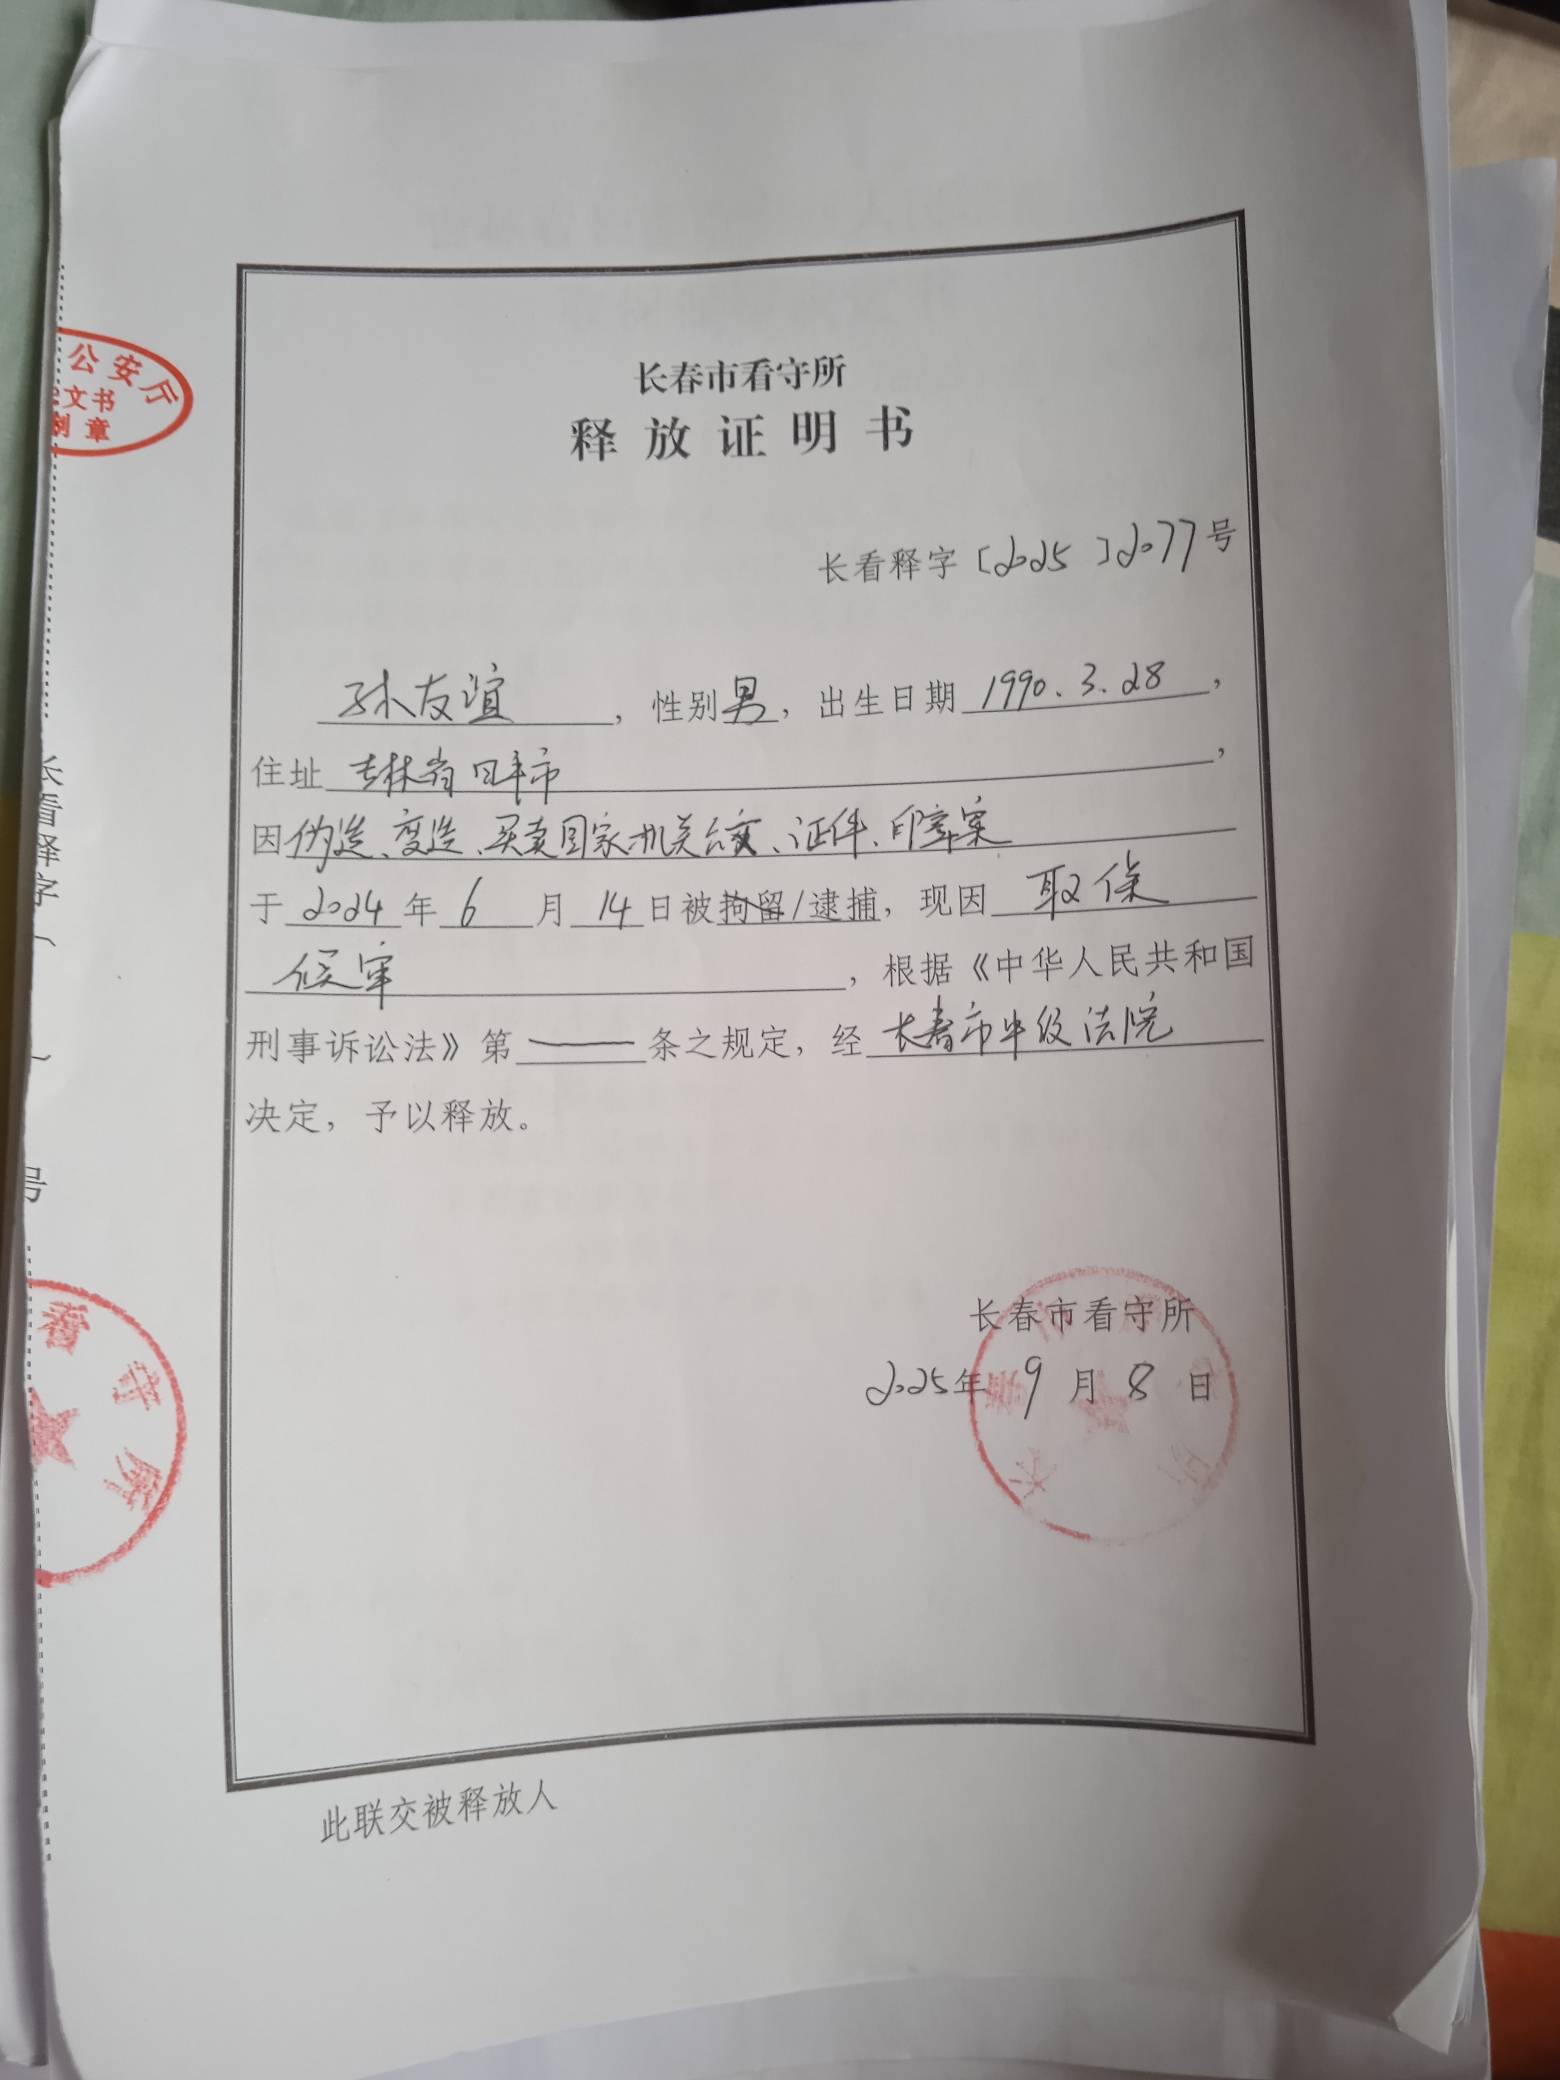 长春市看守所
释放证明书
长看释字〔2025〕2077号
孙友谊，性别男，出生日期1990.3.28，
住址吉林省四平市，
因伪造、变造、买卖国家机关公文、证件、印章案
于2024年6月14日被拘留/逮捕，现因取保
候审，根据《中华人民共和国
刑事诉讼法》第——条之规定，经长春市中级法院
决定，予以释放。
长春市看守所
2025年9月8日
此联交被释放人
公安厅
文书
制章
长看释字〔 〕 号
看守所